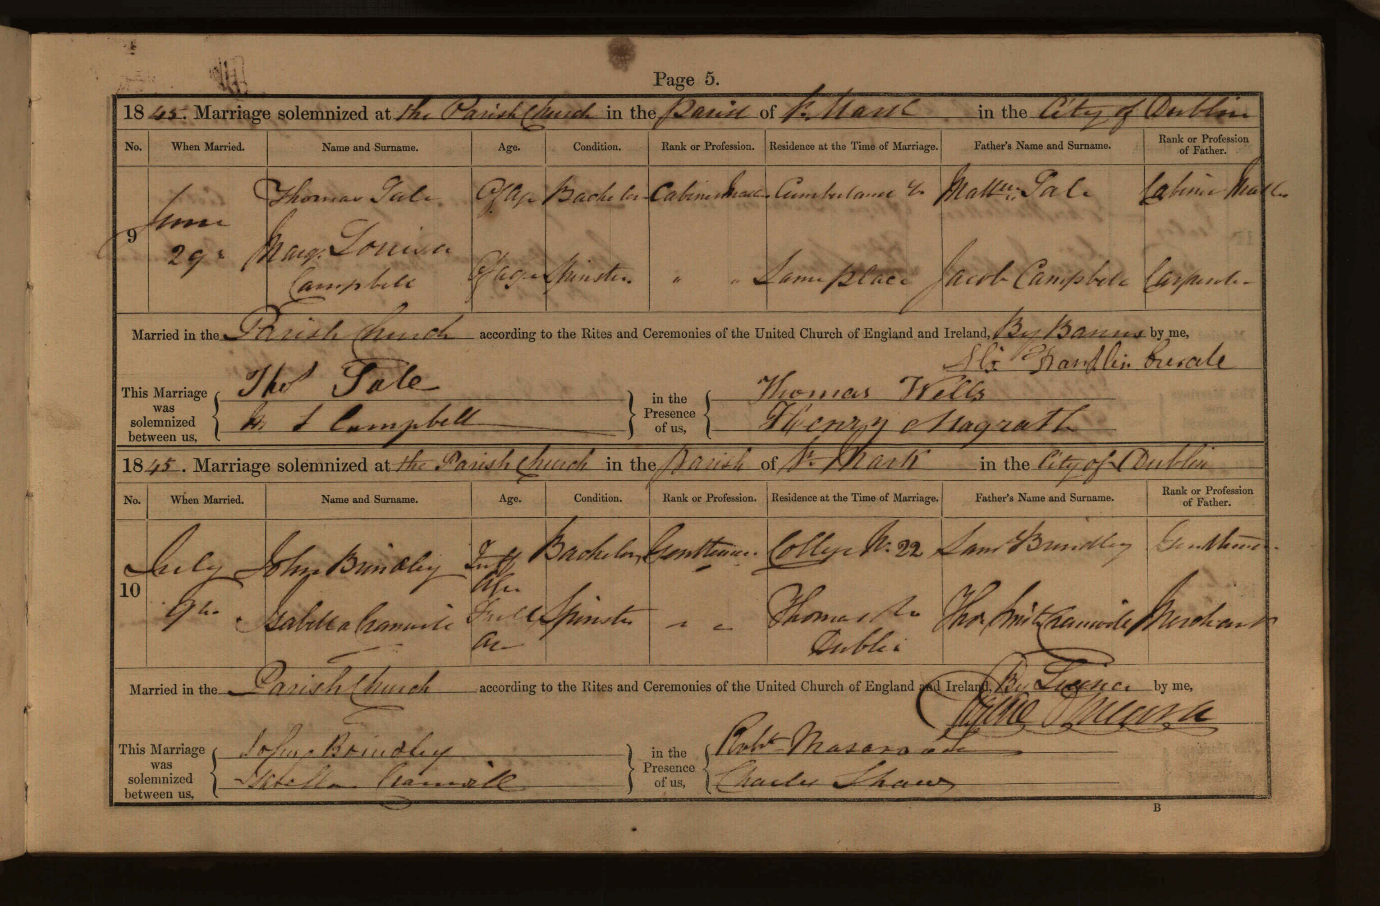 Page 5.
1845. Marriage solemnized at the Parish Church in the Parish of St. Mark in the City of Dublin
No. When Married. Name and Surname. Age. Condition. Rank or Profession. Residence at the Time of Marriage. Father's Name and Surname. Rank or Profession of Father.
9 June 29th Thomas Tale Of Age Bachelor Cabinet Maker Cumberland St Matthew Tale Cabinet Maker
Margt Louisa Campbell Of age Spinster " " Same place Jacob Campbell Carpenter
Married in the Parish Church according to the Rites and Ceremonies of the United Church of England and Ireland, By Banns by me,
Franklin Curate
This Marriage was solemnized between us, Thos Tale in the Presence of us, Thomas Wells
L Campbell Henry Magrath
1845. Marriage solemnized at the Parish Church in the Parish of St. Mark in the City of Dublin
No. When Married. Name and Surname. Age. Condition. Rank or Profession. Residence at the Time of Marriage. Father's Name and Surname. Rank or Profession of Father.
10 July 9th John Brindley Full Age Bachelor Gentleman College No. 22 Saml Brindley Gentleman
Isabella Full Age Spinster " " Thomas St Dublin Thos Merchant
Married in the Parish Church according to the Rites and Ceremonies of the United Church of England and Ireland, By License by me,
This Marriage was solemnized between us, John Brindley in the Presence of us, Robt
Isabella Charles Shaw
B